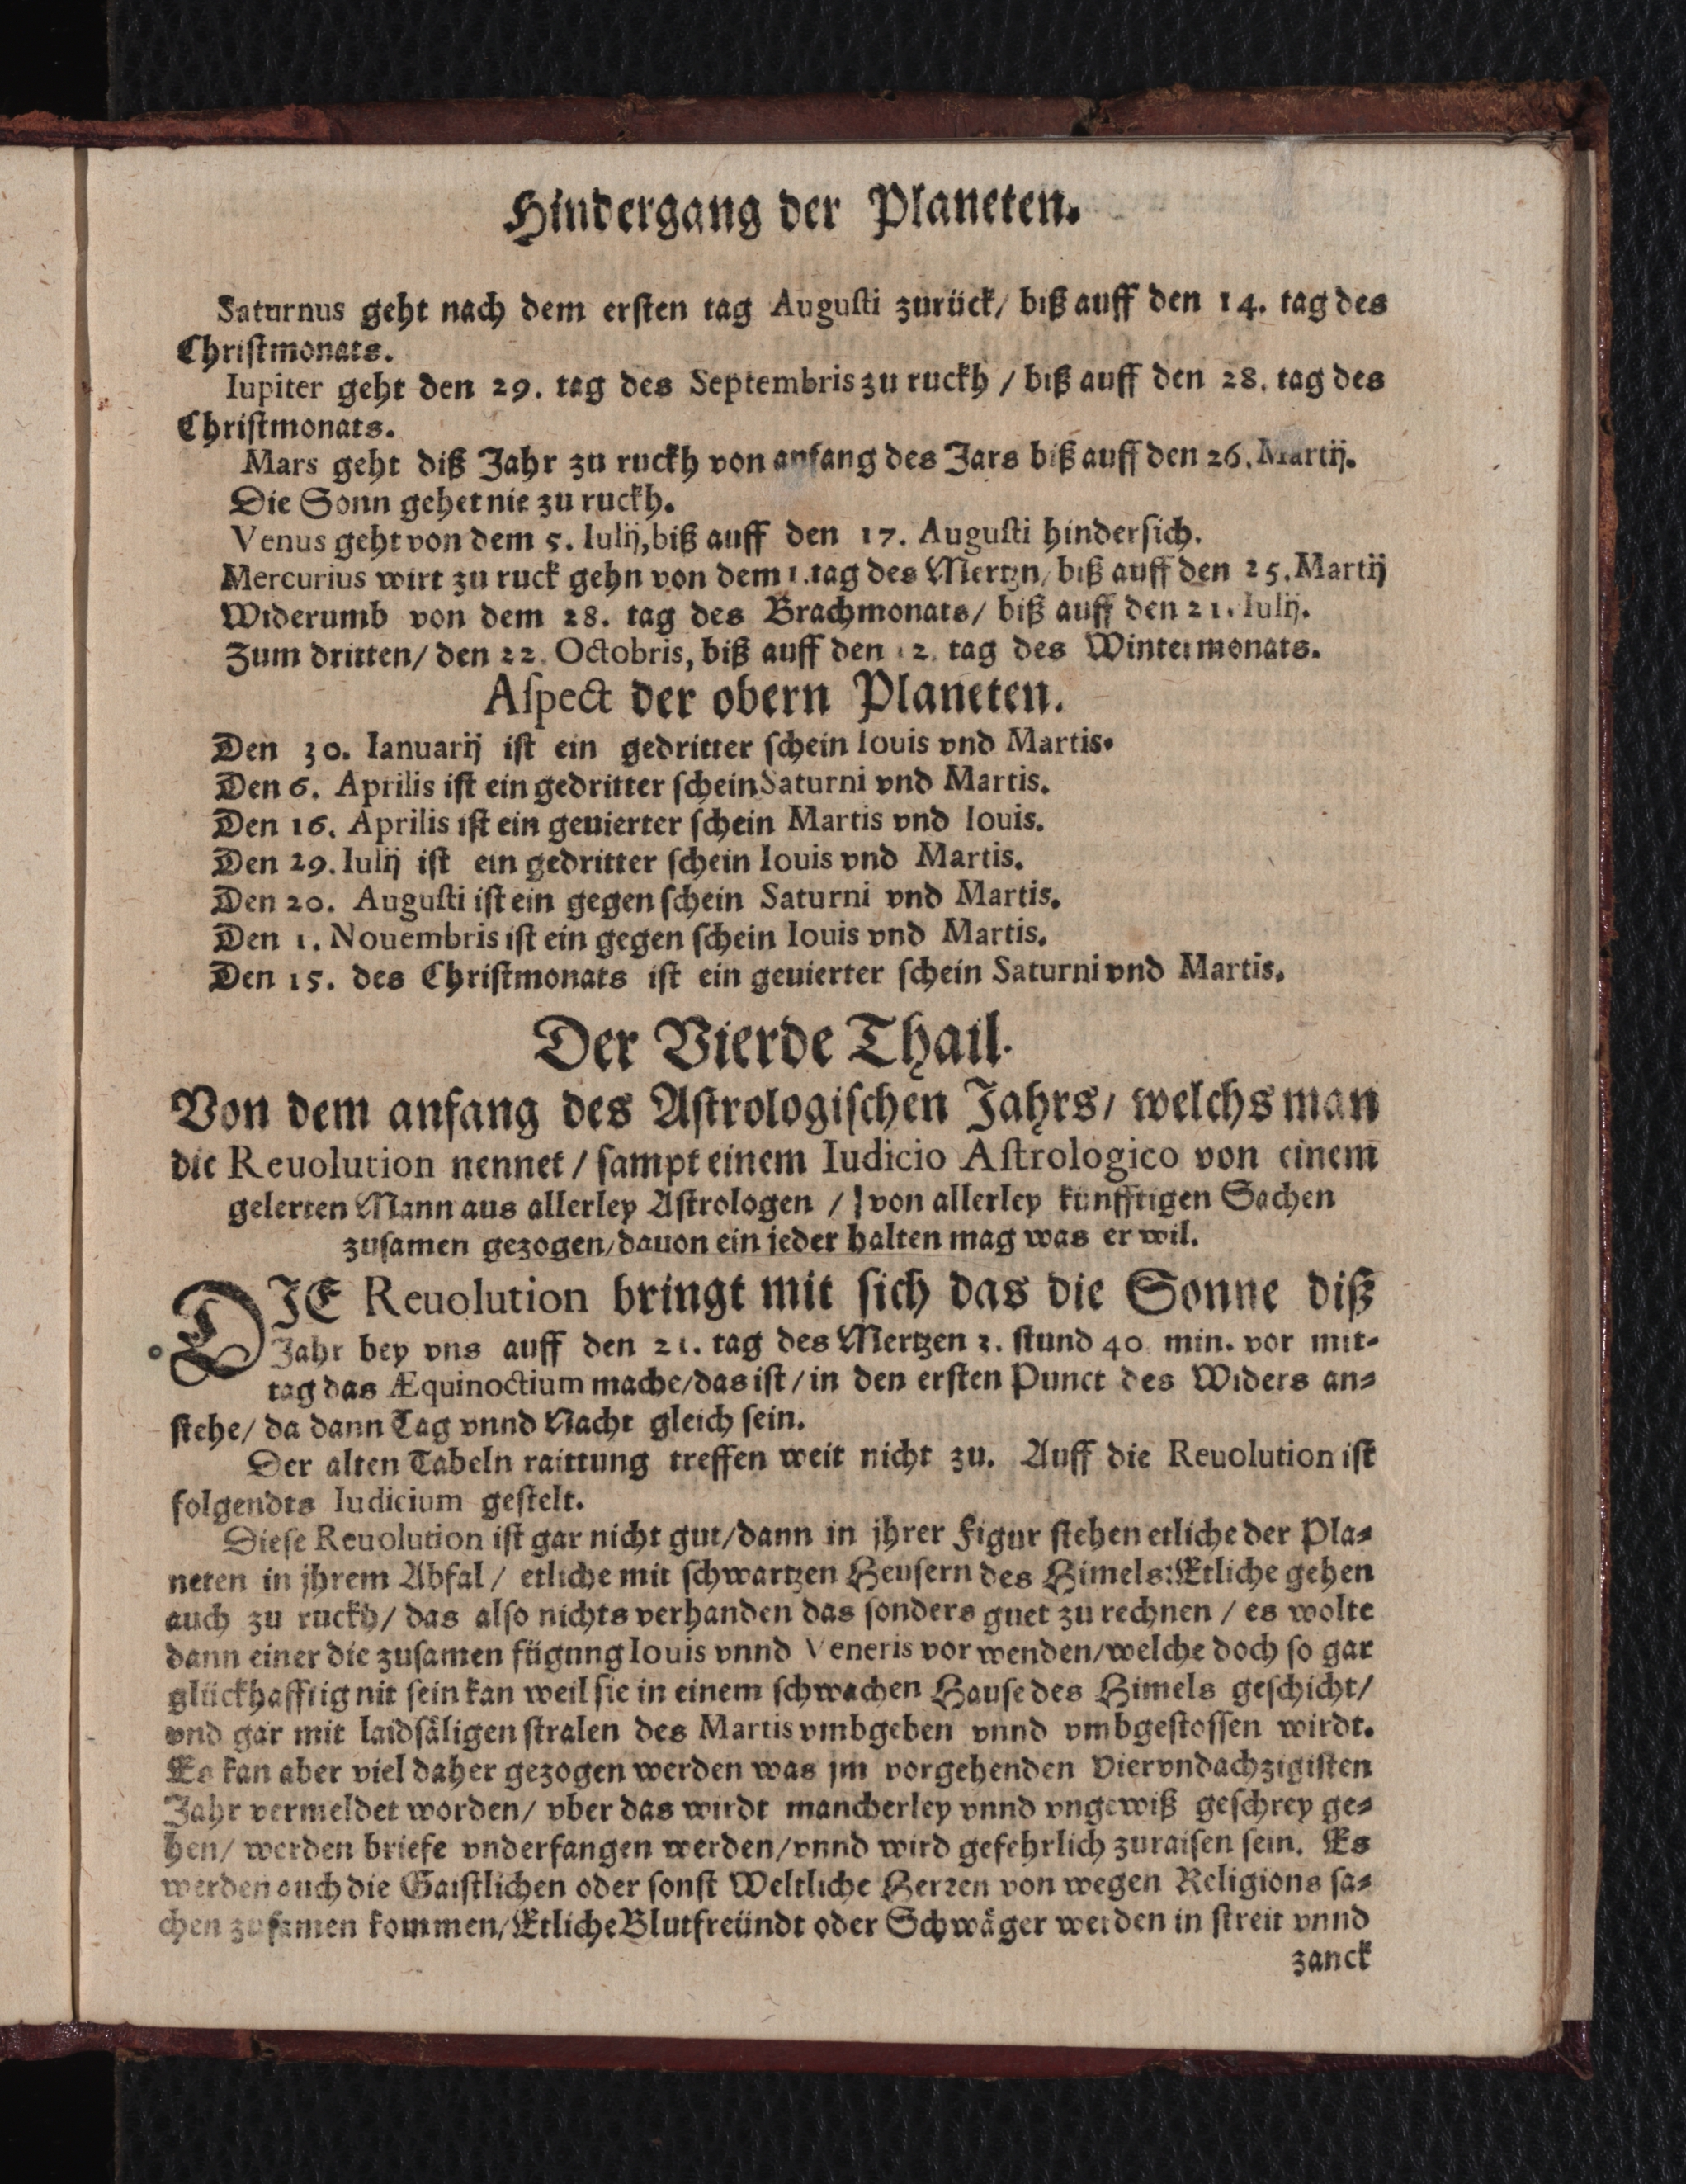 Hindergang der Planeten.
Saturnus geht nach dem ersten tag Augusti zurück/ biß auff den 14. tag des
Christmonats.
Iupiter geht den 29. tag des Septembris zu ruckh / biß auff den 28. tag des
Christmonats.
Mars geht diß Jahr zu ruckh von anfang des Jars biß auff den 26. Martij.
Die Sonn gehet nie zu ruckh.
Venus geht von dem 5. Iulij, biß auff den 17. Augusti hindersich.
Mercurius wirt zu ruck gehn von dem 1. tag des Mertzn/ biß auff den 25. Martij
Widerumb von dem 28. tag des Brachmonats/ biß auff den 21. Iulij.
Zum dritten/ den 22. Octobris, biß auff den 12. tag des Wintermonats.
Aspect der obern Planeten.
Den 30. Ianuarij ist ein gedritter schein Iouis vnd Martis.
Den 6. Aprilis ist ein gedritter schein Saturni vnd Martis.
Den 16. Aprilis ist ein geuierter schein Martis vnd Iouis.
Den 29. Iulij ist ein gedritter schein Iouis vnd Martis.
Den 20. Augusti ist ein gegen schein Saturni vnd Martis.
Den 1. Nouembris ist ein gegen schein Iouis vnd Martis.
Den 15. des Christmonats ist ein geuierter schein Saturni vnd Martis.
Der Vierde Thail.
Von dem anfang des Astrologischen Jahrs/ welchs man
die Reuolution nennet / sampt einem Iudicio Astrologico von einem
gelerten Mann aus allerley Astrologen / von allerley künfftigen Sachen
zusamen gezogen/ dauon ein jeder halten mag was er wil.
DIE Reuolution bringt mit sich das die Sonne diß
Jahr bey vns auff den 21. tag des Mertzen 3. stund 40 min. vor mit-
tag das Æquinoctium mache/ das ist/ in den ersten Punct des Widers an-
stehe/ da dann Tag vnnd Nacht gleich sein.
Der alten Tabeln raittung treffen weit nicht zu. Auff die Reuolution ist
folgendts Iudicium gestelt.
Diese Reuolution ist gar nicht gut/ dann in jhrer Figur stehen etliche der Pla-
neten in jhrem Abfal/ etliche mit schwartzen Heusern des Himels: Etliche gehen
auch zu ruckh/ das also nichts verhanden das sonders guet zu rechnen / es wolte
dann einer die zusamen fügung Iouis vnnd Veneris vor wenden/ welche doch so gar
glückhafftig nit sein kan weil sie in einem schwachen Hause des Himels geschicht/
vnd gar mit laidsäligen stralen des Martis vmbgeben vnnd vmbgestossen wirdt.
Es kan aber viel daher gezogen werden was jm vorgehenden Viervndachzigisten
Jahr vermeldet worden/ vber das wirdt mancherley vnnd vngewiß geschrey ge-
hen/ werden briefe vnderfangen werden/ vnnd wird gefehrlich zuraisen sein. Es
werden auch die Gaistlichen oder sonst Weltliche Herren von wegen Religions sa-
chen zusamen kommen/ Etliche Blutfreündt oder Schwäger werden in streit vnnd
zanck